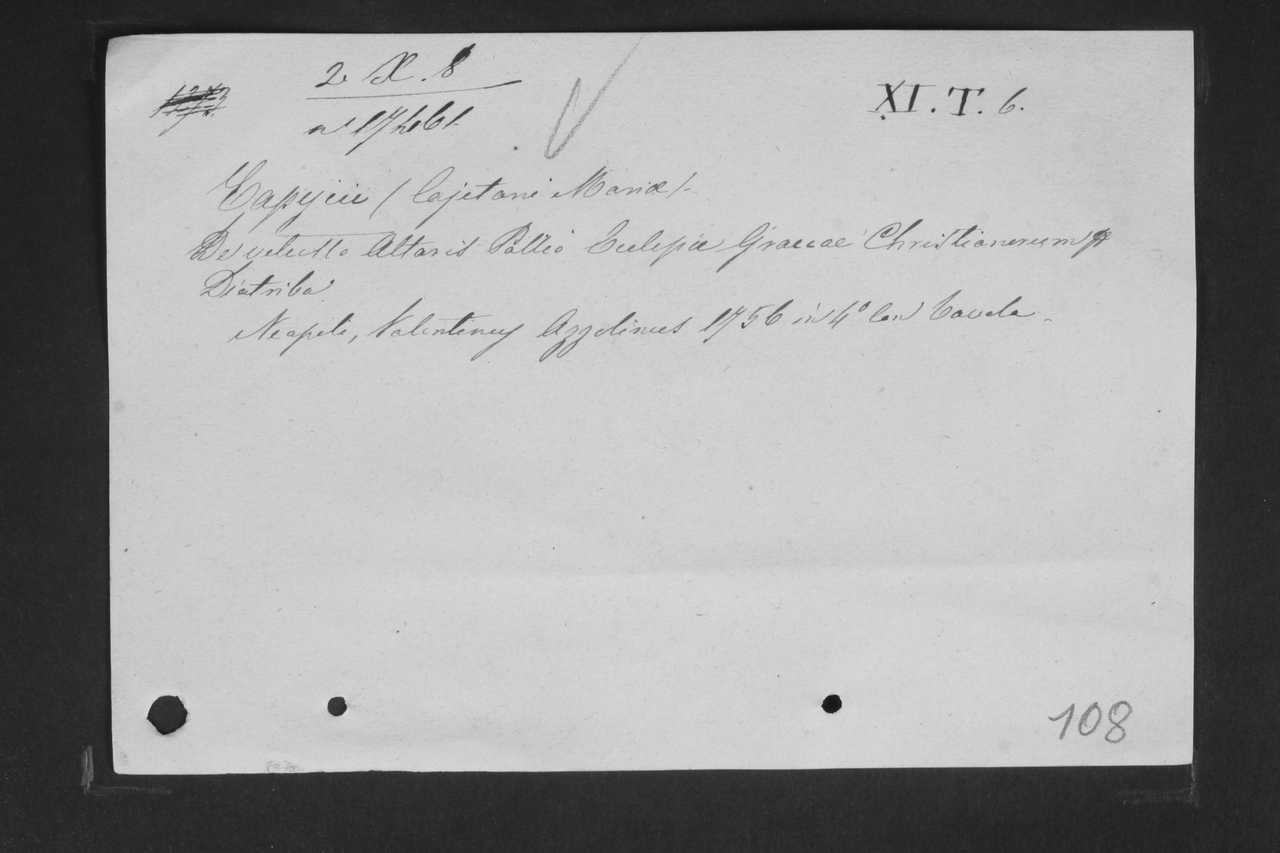 2. X. 8
n° 17461.
XI. T. 6.
Capycii (Cajetani Mariæ).
De vetusto Altaris Pallio Ecclesiæ Graecae Christianorum
Diatriba
Neapoli, Azzolinus 1756 in 4° con tavola.
108